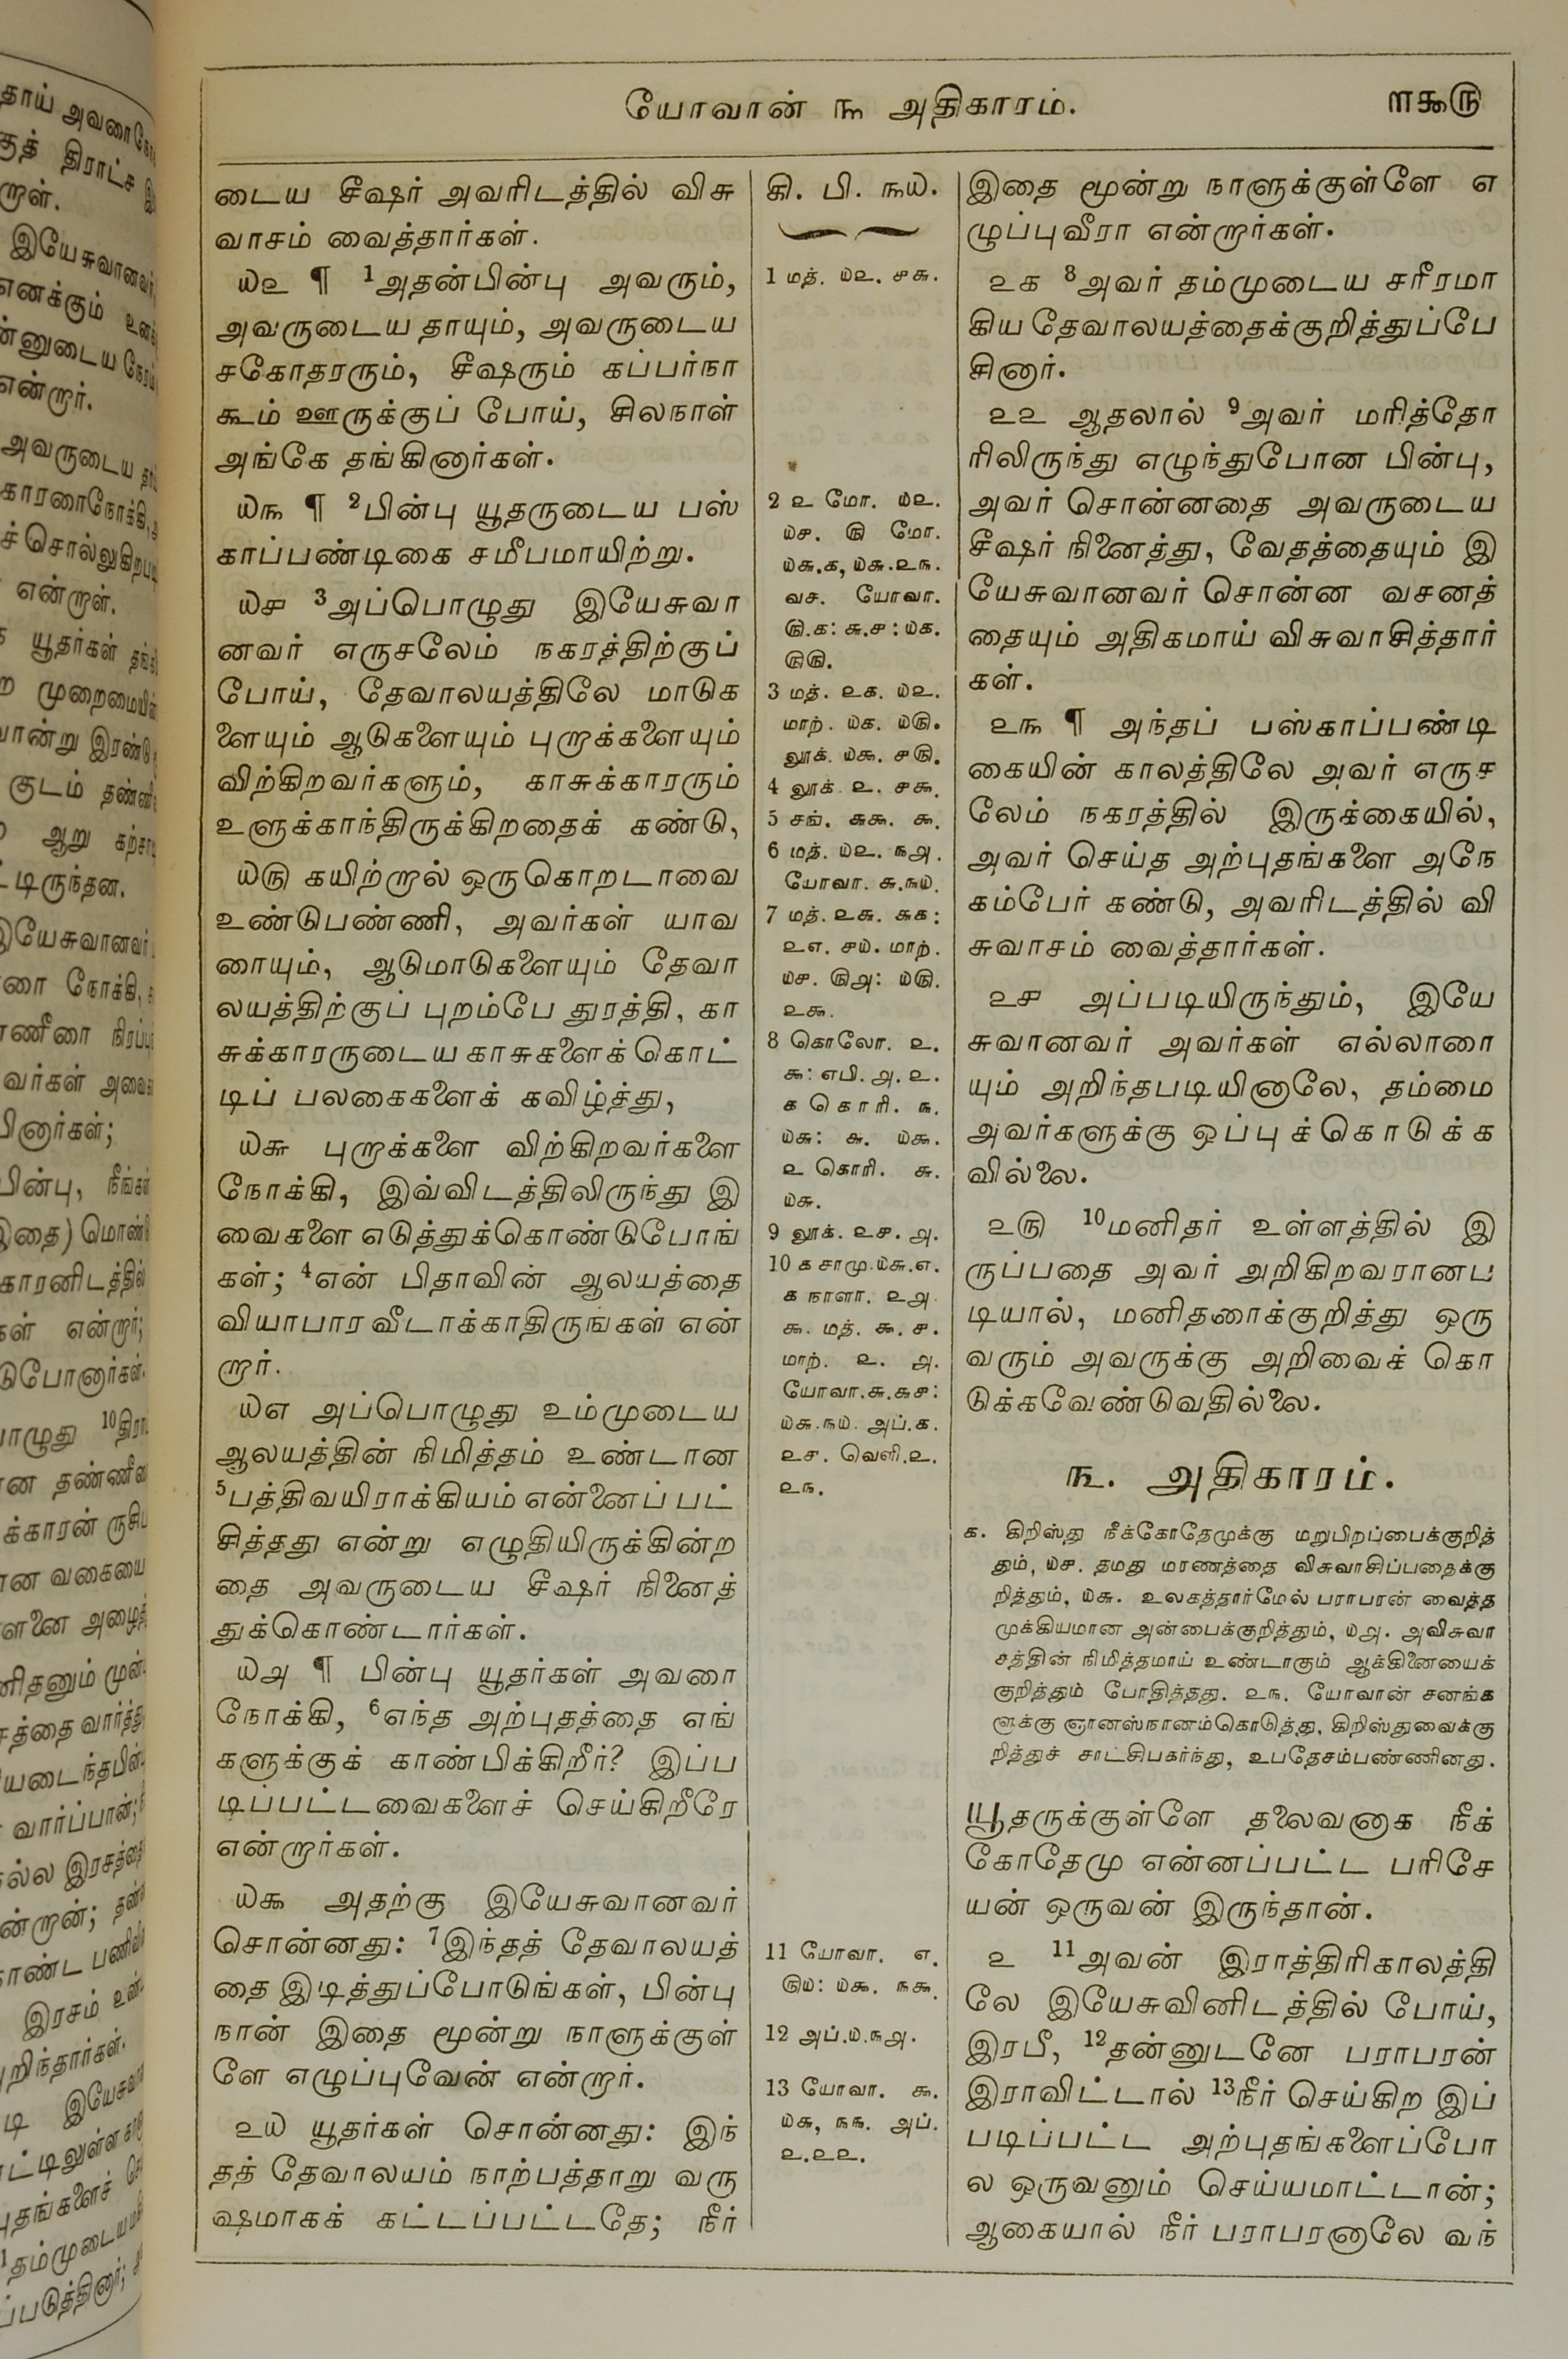 யோவான் ௩ அதிகாரம். ௱௯௫
டைய சீஷர் அவரிடத்தில் விசு
வாசம் வைத்தார்கள்.
௰௨ ¶ 1அதன்பின்பு அவரும்,
அவருடைய தாயும், அவருடைய
சகோதரரும், சீஷரும் கப்பர்நா
கூம் ஊருக்குப் போய், சிலநாள்
அங்கே தங்கினார்கள்.
௰௩ ¶ 2பின்பு யூதருடைய பஸ்
காப்பண்டிகை சமீபமாயிற்று.
௰௪ 3அப்பொழுது இயேசுவா
னவர் எருசலேம் நகரத்திற்குப்
போய், தேவாலயத்திலே மாடுக
ளையும் ஆடுகளையும் புறாக்களையும்
விற்கிறவர்களும், காசுக்காரரும்
உளுக்காந்திருக்கிறதைக் கண்டு,
௰௫ கயிற்றால் ஒருகொறடாவை
உண்டுபண்ணி, அவர்கள் யாவ
ரையும், ஆடுமாடுகளையும் தேவா
லயத்திற்குப் புறம்பே துரத்தி, கா
சுக்காரருடைய காசுகளைக் கொட்
டிப் பலகைகளைக் கவிழ்த்து,
௰௬ புறாக்களை விற்கிறவர்களை
நோக்கி, இவ்விடத்திலிருந்து இ
வைகளை எடுத்துக்கொண்டுபோங்
கள்; 4என் பிதாவின் ஆலயத்தை
வியாபார வீடாக்காதிருங்கள் என்
றார்.
௰௭ அப்பொழுது உம்முடைய
ஆலயத்தின் நிமித்தம் உண்டான
5பத்திவயிராக்கியம் என்னைப் பட்
சித்தது என்று எழுதியிருக்கின்ற
தை அவருடைய சீஷர் நினைத்
துக்கொண்டார்கள்.
௰௮ ¶ பின்பு யூதர்கள் அவரை
நோக்கி, 6எந்த அற்புதத்தை எங்
களுக்குக் காண்பிக்கிறீர்? இப்ப
டிப்பட்டவைகளைச் செய்கிறீரே
என்றார்கள்.
௰௯ அதற்கு இயேசுவானவர்
சொன்னது: 7இந்தத் தேவாலயத்
தை இடித்துப்போடுங்கள், பின்பு
நான் இதை மூன்று நாளுக்குள்
ளே எழுப்புவேன் என்றார்.
௨௰ யூதர்கள் சொன்னது: இந்
தத் தேவாலயம் நாற்பத்தாறு வரு
ஷமாகக் கட்டப்பட்டதே; நீர்
கி. பி. ௩௰.
1 மத். ௰௨. ௪௬.
2 ௨ மோ. ௰௨.
௰௪. ௫ மோ.
௰௬.௧, ௰௬.௨௩.
வச. யோவா.
௫.௧: ௬.௪: ௰௧.
௫௫.
3 மத். ௨௧. ௰௨.
மாற். ௰௧. ௰௫.
லூக். ௰௯. ௪௫.
4 லூக். ௨. ௪௯.
5 சங். ௬௯. ௯.
6 மத். ௰௨. ௩௮.
யோவா. ௬.௩௰.
7 மத். ௨௬. ௬௧:
௨௭. ௪௰. மாற்.
௰௪. ௫௮: ௰௫.
௨௯.
8 கொலோ. ௨.
௯: எபி. ௮. ௨.
௧ கொரி. ௩.
௰௬: ௬. ௰௯.
௨ கொரி. ௬.
௰௬.
9 லூக். ௨௪. ௮.
10 ௧ சாமு.௰௬.௭.
௧ நாளா. ௨௮.
௯. மத். ௯. ௪.
மாற். ௨. ௮.
யோவா.௬.௬௪:
௰௬.௩௰. அப்.௧.
௨௪. வெளி.௨.
௨௩.
11 யோவா. ௭.
௫௰: ௰௯. ௩௯.
12 அப்.௰.௩௮.
13 யோவா. ௯.
௰௬, ௩௩. அப்.
௨.௨௨.
இதை மூன்று நாளுக்குள்ளே எ
ழுப்புவீரா என்றார்கள்.
௨௧ 8அவர் தம்முடைய சரீரமா
கிய தேவாலயத்தைக்குறித்துப்பே
சினார்.
௨௨ ஆதலால் 9அவர் மரித்தோ
ரிலிருந்து எழுந்துபோன பின்பு,
அவர் சொன்னதை அவருடைய
சீஷர் நினைத்து, வேதத்தையும் இ
யேசுவானவர் சொன்ன வசனத்
தையும் அதிகமாய் விசுவாசித்தார்
கள்.
௨௩ ¶ அந்தப் பஸ்காப்பண்டி
கையின் காலத்திலே அவர் எருச
லேம் நகரத்தில் இருக்கையில்,
அவர் செய்த அற்புதங்களை அநே
கம்பேர் கண்டு, அவரிடத்தில் வி
சுவாசம் வைத்தார்கள்.
௨௪ அப்படியிருந்தும், இயே
சுவானவர் அவர்கள் எல்லாரை
யும் அறிந்தபடியினாலே, தம்மை
அவர்களுக்கு ஒப்புக்கொடுக்க
வில்லை.
௨௫ 10மனிதர் உள்ளத்தில் இ
ருப்பதை அவர் அறிகிறவரானப
டியால், மனிதரைக்குறித்து ஒரு
வரும் அவருக்கு அறிவைக் கொ
டுக்கவேண்டுவதில்லை.
௩. அதிகாரம்.
௧. கிறிஸ்து நீக்கோதேமுக்கு மறுபிறப்பைக்குறித்
தும், ௰௪. தமது மரணத்தை விசுவாசிப்பதைக்கு
றித்தும், ௰௬. உலகத்தார்மேல் பராபரன் வைத்த
முக்கியமான அன்பைக்குறித்தும், ௰௮. அவிசுவா
சத்தின் நிமித்தமாய் உண்டாகும் ஆக்கினையைக்
குறித்தும் போதித்தது. ௨௩. யோவான் சனங்க
ளுக்கு ஞானஸ்நானம்கொடுத்து, கிறிஸ்துவைக்கு
றித்துச் சாட்சிபகர்ந்து, உபதேசம்பண்ணினது.
யூதருக்குள்ளே தலைவனாக நீக்
கோதேமு என்னப்பட்ட பரிசே
யன் ஒருவன் இருந்தான்.
௨ 11அவன் இராத்திரிகாலத்தி
லே இயேசுவினிடத்தில் போய்,
இரபீ, 12தன்னுடனே பராபரன்
இராவிட்டால் 13நீர் செய்கிற இப்
படிப்பட்ட அற்புதங்களைப்போ
ல ஒருவனும் செய்யமாட்டான்;
ஆகையால் நீர் பராபரனாலே வந்